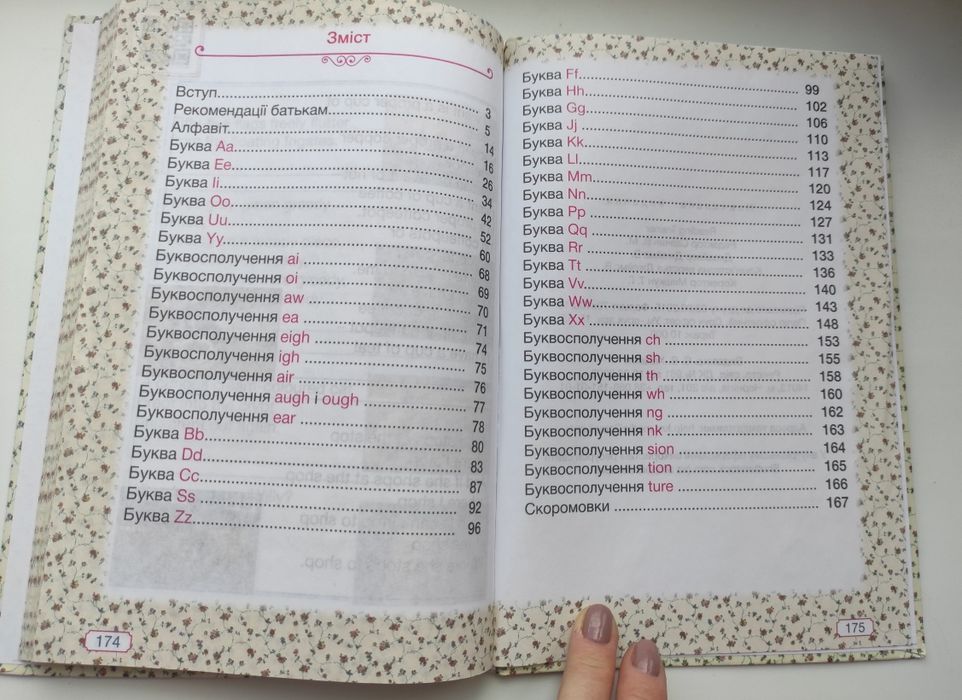 Зміст
Вступ.......... 3
Рекомендації батькам.......... 5
Алфавіт.......... 14
Буква Aa.......... 16
Буква Ee.......... 26
Буква Ii.......... 34
Буква Oo.......... 42
Буква Uu.......... 52
Буква Yy.......... 60
Буквосполучення ai .......... 68
Буквосполучення oi .......... 69
Буквосполучення aw .......... 70
Буквосполучення ea .......... 71
Буквосполучення eigh .......... 74
Буквосполучення igh .......... 75
Буквосполучення air .......... 76
Буквосполучення augh і ough .......... 77
Буквосполучення ear .......... 78
Буква Bb.......... 80
Буква Dd.......... 83
Буква Cc.......... 87
Буква Ss.......... 92
Буква Zz.......... 96
174
Буква Ff.......... 99
Буква Hh.......... 102
Буква Gg.......... 106
Буква Jj.......... 110
Буква Kk.......... 113
Буква Ll.......... 117
Буква Mm.......... 120
Буква Nn.......... 124
Буква Pp.......... 127
Буква Qq.......... 131
Буква Rr.......... 133
Буква Tt.......... 136
Буква Vv.......... 140
Буква Ww.......... 143
Буква Xx.......... 148
Буквосполучення ch .......... 153
Буквосполучення sh .......... 155
Буквосполучення th .......... 158
Буквосполучення wh .......... 160
Буквосполучення ng .......... 162
Буквосполучення nk .......... 163
Буквосполучення sion .......... 164
Буквосполучення tion .......... 165
Буквосполучення ture .......... 166
Скоромовки .......... 167
175